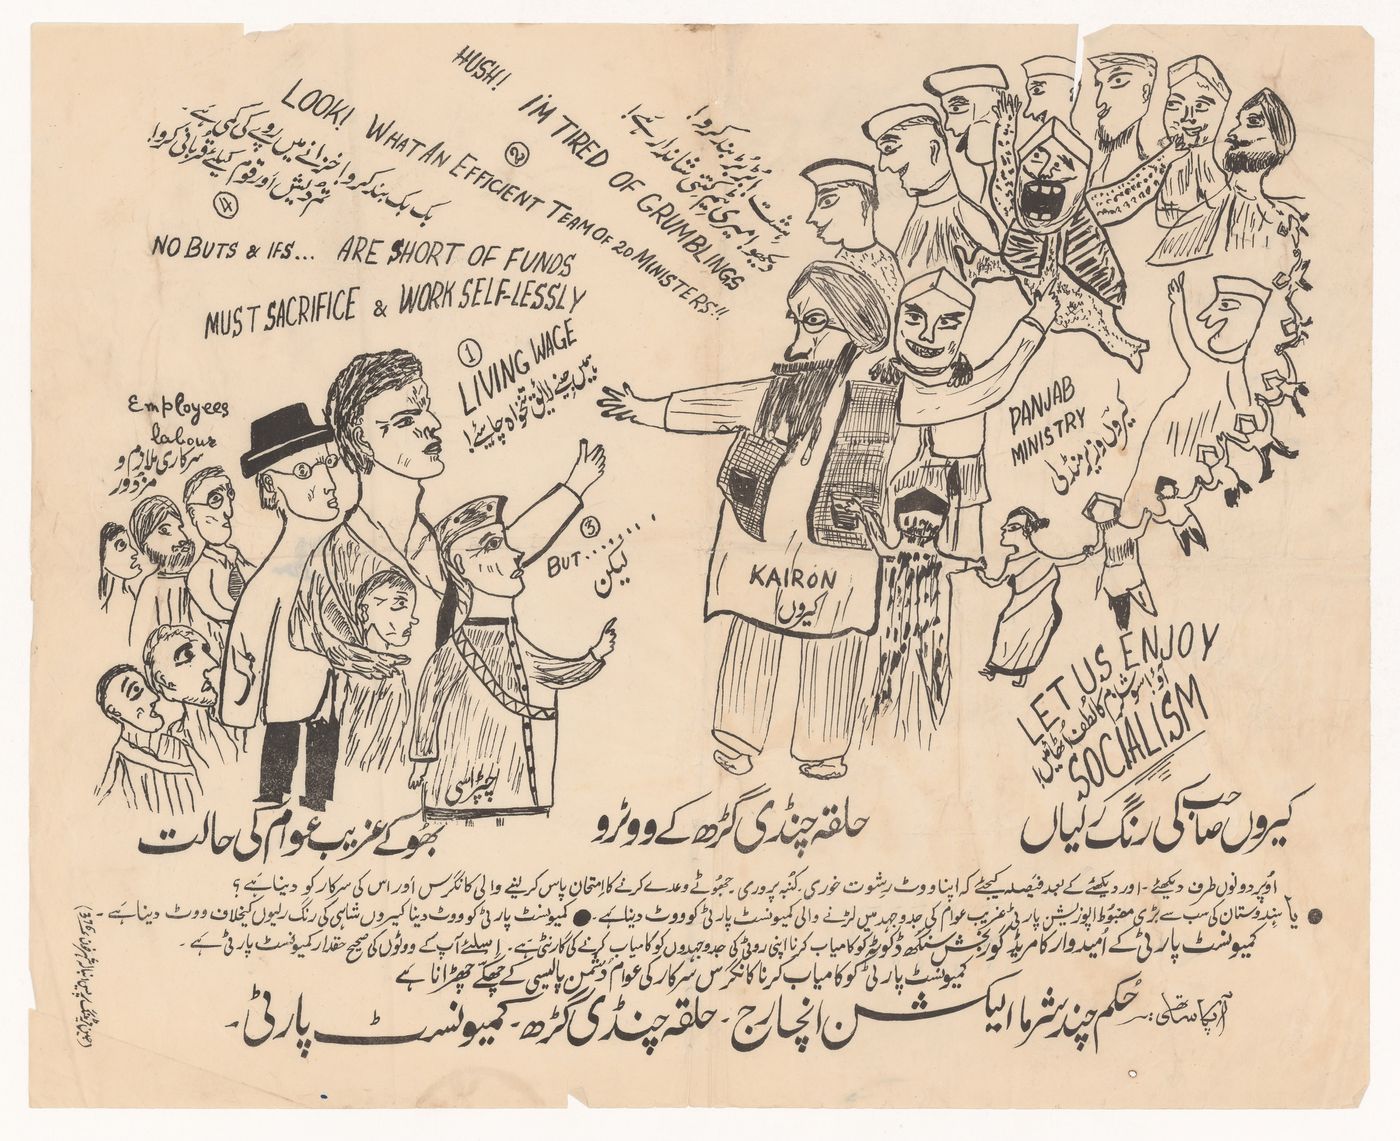 HUSH! I'M TIRED OF GRUMBLINGS
LOOK! WHAT AN EFFICIENT TEAM OF 20 MINISTERS!!
②
ہشت! بڑبڑ بند کرو!
دیکھو! میری ٹیم کتنی شاندار ہے!
بک بک بند کرو! خزانے میں روپے کی کمی ہے۔
تم دیش اور قوم کیلئے قربانی کرو!
④
NO BUTS & IFS... ARE SHORT OF FUNDS
MUST SACRIFICE & WORK SELF-LESSLY
①
LIVING WAGE
ہمیں جینے لائق تنخواہ چاہیئے!
Employees
labour
سرکاری ملازم و
مزدور
③
BUT........
لیکن
PANJAB
MINISTRY
کیروں وزیر منڈلی
KAIRON
کیروں
چپڑاسی
LET US ENJOY
آؤ! سوشلزم کا لطف اٹھائیں!
SOCIALISM
کیروں صاحب کی رنگ رلیاں
حلقہ چنڈی گڑھ کے ووٹرو
بھوکے غریب عوام کی حالت
اوپر دونوں طرف دیکھئے - اور دیکھنے کے بعد فیصلہ کیجئے کہ اپنا ووٹ رشوت خوری - کنبہ پروری - جھوٹے وعدے کرنے کا امتحان پاس کرلینے والی کانگرس اور اس کی سرکار کو دینا ہے؟
● یا ہندوستان کی سب سے بڑی مضبوط اپوزیشن پارٹی غریب عوام کی جدوجہد میں لڑنے والی کمیونسٹ پارٹی کو ووٹ دینا ہے۔ ● کمیونسٹ پارٹی کو ووٹ دینا کیروں شاہی کی رنگ رلیوں کیخلاف ووٹ دینا ہے۔
کمیونسٹ پارٹی کے اُمیدوار کامریڈ گوربخش سنگھ ڈکوٹہ کو کامیاب کرنا اپنی روٹی کی جدوجہدوں کو کامیاب کرنے کی گارنٹی ہے۔ اسلئے آپ کے ووٹوں کی صحیح حقدار کمیونسٹ پارٹی ہے۔
کمیونسٹ پارٹی کو کامیاب کرنا کانگرس سرکار کی عوام دشمن پالیسی کے چھکے چھڑانا ہے
آپکا ساتھی:۔ حکم چند شرما الیکشن انچارج - حلقہ چنڈی گڑھ - کمیونسٹ پارٹی -